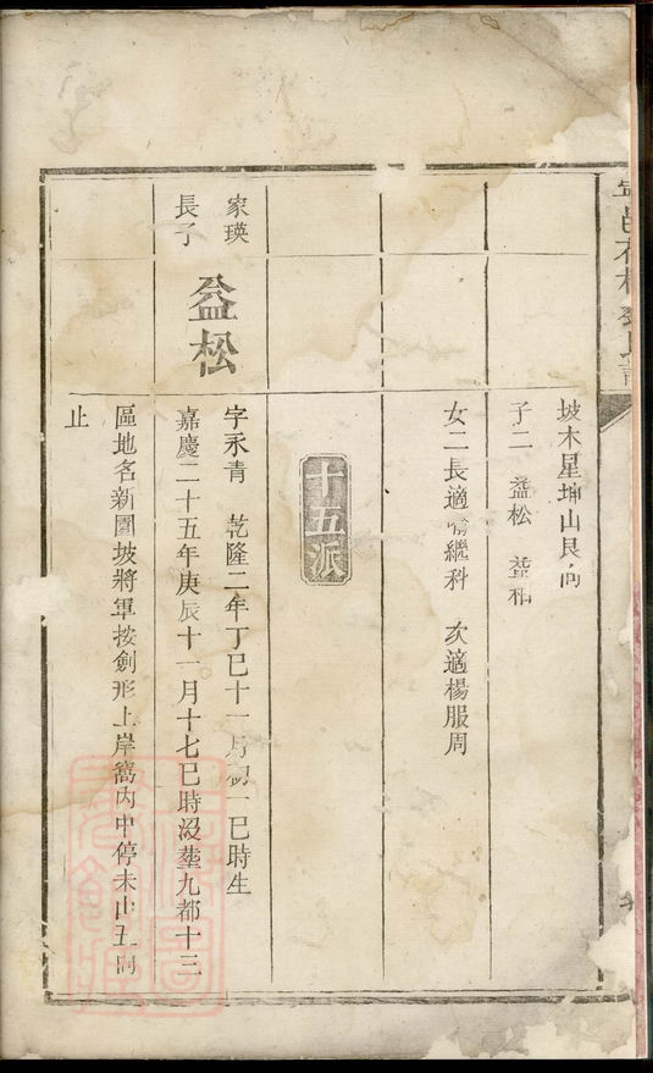 坡木星坤山艮向
子二　益松　益柏
女二長適喻繼科　次適楊服周
十五派
家瑛
長子
益松
字永青　乾隆二年丁巳十一月初一巳時生
嘉慶二十五年庚辰十一月十七巳時沒葬九都十三
區地名新圍坡將軍按劍形上岸窩內中停未山丑向
止